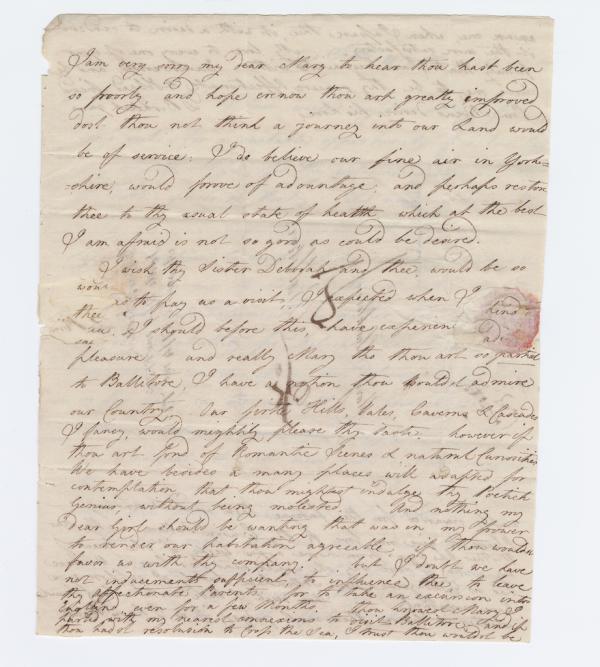 I am very sorry my dear Mary to hear thou hast been
so poorly and hope erenow thou art greatly improved
dost thou not think a journey into our Land would
be of service. I do believe our fine air in York=
=shire, would prove of advantage, and perhaps restore
thee to thy usual state of health which at the best
I am afraid is not so good, as could be desire.
I wish thy Sister Deborah and thee, would be so kind
as to pay us a visit, I expected when I
thee I should before this, have experien
pleasure and really Mary tho thou art so partial
to Ballitore, I have a notion thou would'st admire
our Country. Our Hills, Vales, Caverns & Cascades
I fancy, would mightily please thy taste. however if
thou art fond of Romantic Scenes & natural Curiosities
We have besides a many places well adapted for
contemplation that thou mightest indulge thy Poetick
Genius, without being molested. And nothing my
dear Girl should be wanting that was in my power
to render our habitation agreeable, if thou wouldst
favor us with thy company. but I doubt we have
not inducements sufficient, to influence thee to leave
thy affectionate Parents for to take an excursion into
England even for a few Months. thou knowest Mary I
parted with my nearest connexions to visit Ballitore and if
thou hadst resolution to Cross the Sea, I trust thou wouldst be